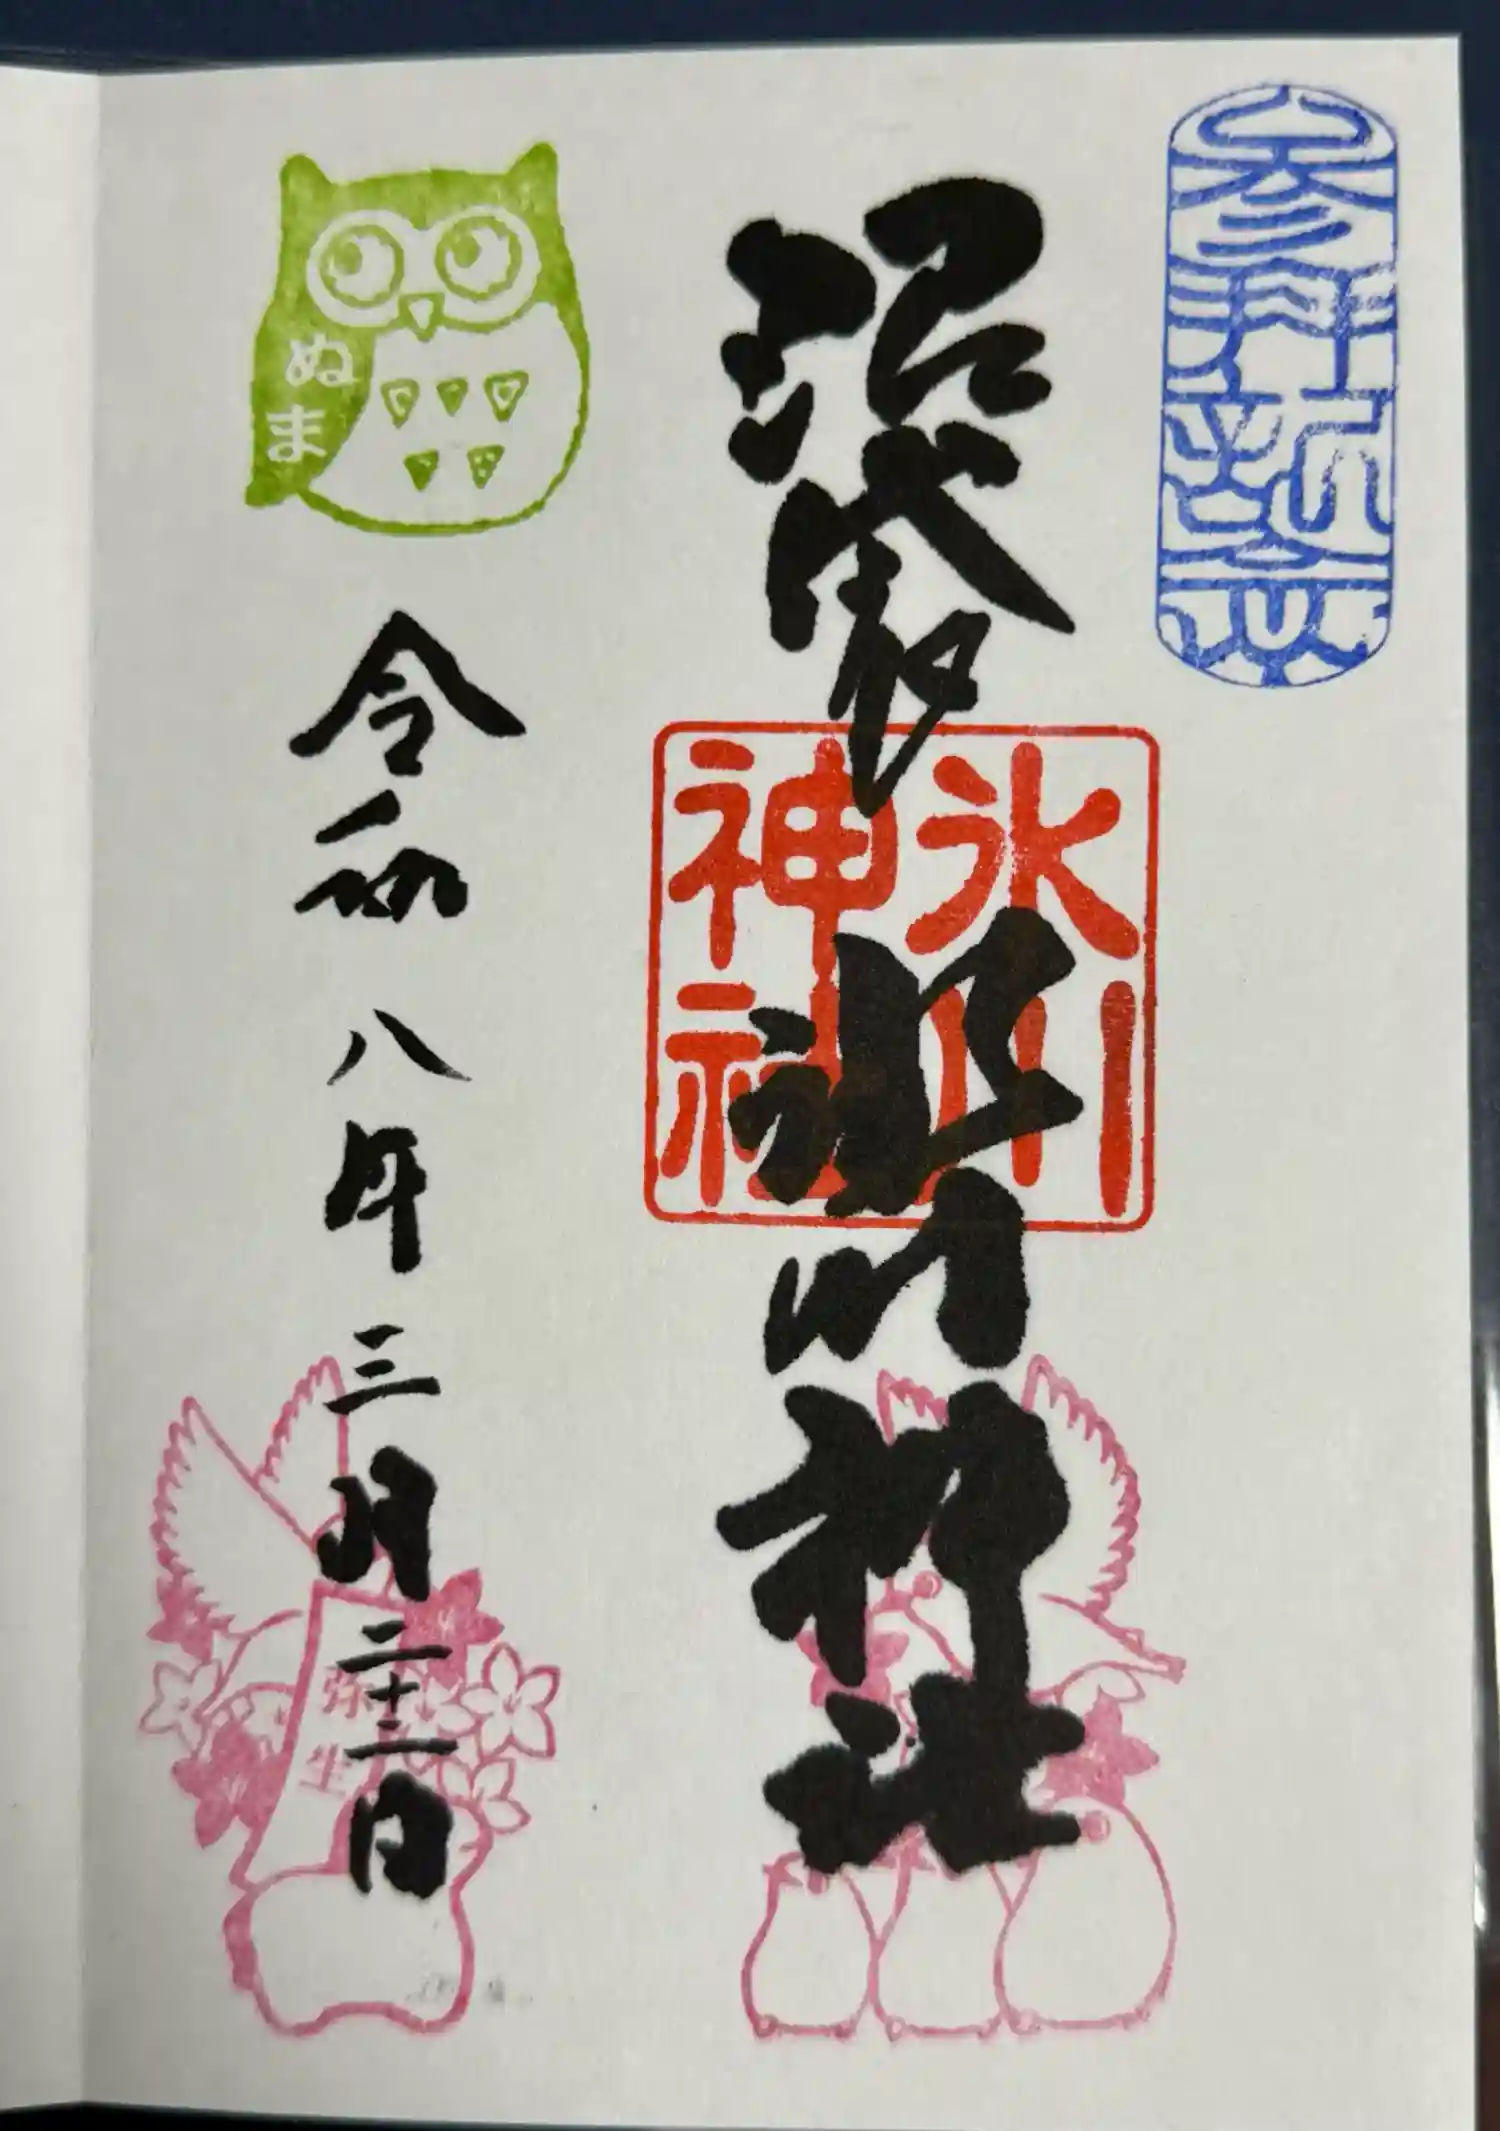 参拝祈念
沼袋
氷川神社
氷川
神社
ぬま
令和八年三月二十二日
弥生